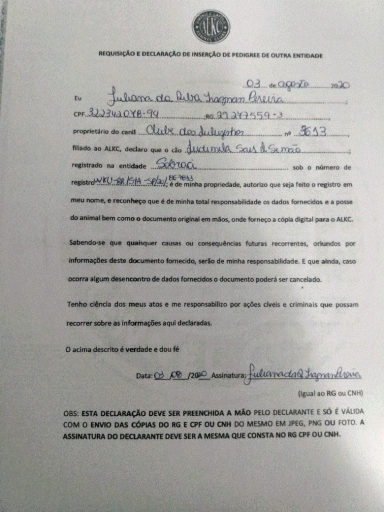 ALKC
REQUISIÇÃO E DECLARAÇÃO DE INSERÇÃO DE PEDIGREE DE OUTRA ENTIDADE
03 de agosto 2020
Eu Juliana da Pereira
CPF RG
proprietário do canil Clube dos nº 3613
filiado ao ALKC, declaro que o cão Ludimila de
registrado na entidade Sobraci sob o número de
registro é de minha propriedade, autorizo que seja feito o registro em
meu nome, e reconheço que é de minha total responsabilidade os dados fornecidos e a posse
do animal bem como o documento original em mãos, onde forneço a cópia digital para o ALKC.
Sabendo-se que quaisquer causas ou consequências futuras recorrentes, oriundos por
informações deste documento fornecido, serão de minha responsabilidade. E que ainda, caso
ocorra algum desencontro de dados fornecidos o documento poderá ser cancelado.
Tenho ciência dos meus atos e me responsabilizo por ações cíveis e criminais que possam
recorrer sobre as informações aqui declaradas.
O acima descrito é verdade e dou fé
Data: 03 /08 /2020 Assinatura: Juliana da Pereira
(igual ao RG ou CNH)
OBS: ESTA DECLARAÇÃO DEVE SER PREENCHIDA A MÃO PELO DECLARANTE E SÓ É VÁLIDA
COM O ENVIO DAS CÓPIAS DO RG E CPF OU CNH DO MESMO EM JPEG, PNG OU FOTO. A
ASSINATURA DO DECLARANTE DEVE SER A MESMA QUE CONSTA NO RG CPF OU CNH.